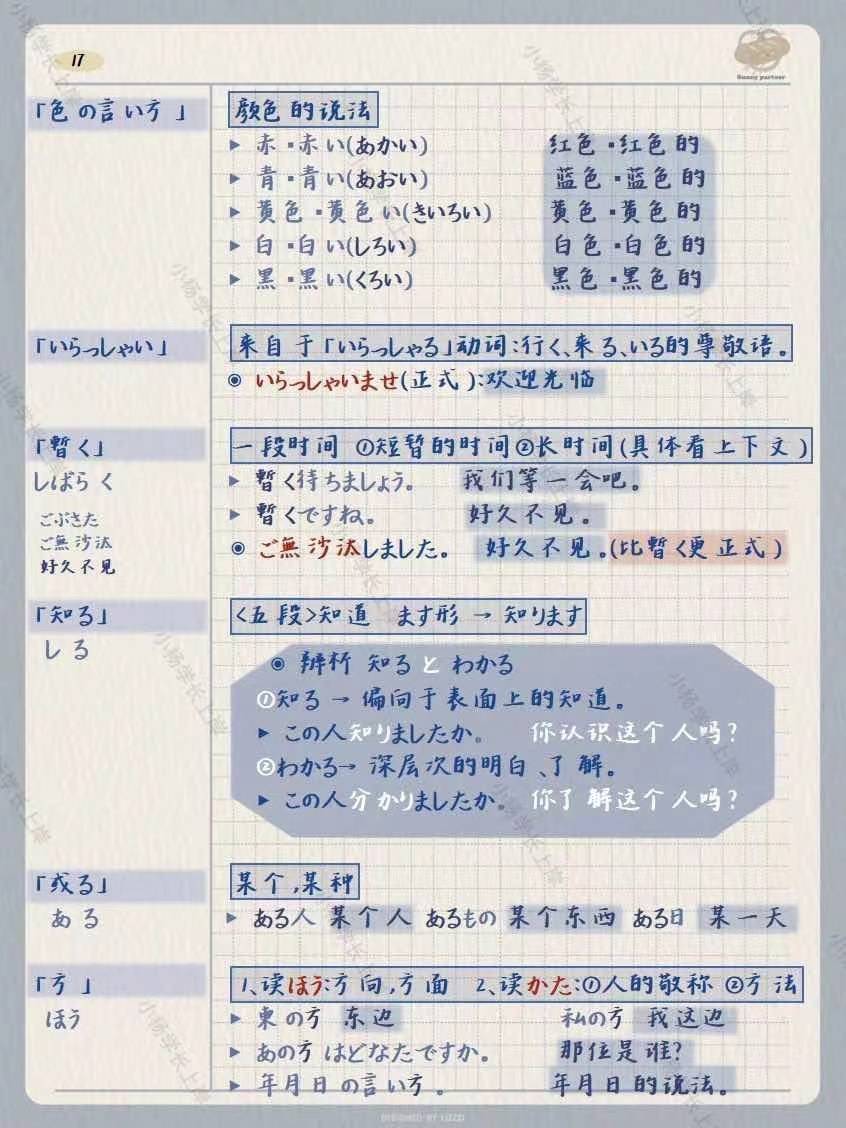 17
Sunny partner
「色の言い方」 颜色的说法
▶ 赤·赤い(あかい) 红色·红色的
▶ 青·青い(あおい) 蓝色·蓝色的
▶ 黄色·黄色い(きいろい) 黄色·黄色的
▶ 白·白い(しろい) 白色·白色的
▶ 黒·黒い(くろい) 黑色·黑色的
「いらっしゃい」 来自于「いらっしゃる」动词:行く、来る、いる的尊敬语。
◉ いらっしゃいませ(正式):欢迎光临
「暫く」 一段时间 ①短暂的时间②长时间(具体看上下文)
しばらく ▶ 暫く待ちましょう。 我们等一会吧。
ごぶさた ▶ 暫くですね。 好久不见。
ご無沙汰 ◉ ご無沙汰しました。 好久不见。(比暫く更正式)
好久不见
「知る」 〈五段〉知道 ます形 → 知ります
しる
◉ 辨析 知ると わかる
①知る → 偏向于表面上的知道。
▶ この人知りましたか。 你认识这个人吗?
②わかる→ 深层次的明白、了解。
▶ この人分かりましたか。 你了解这个人吗?
「或る」 某个,某种
ある ▶ ある人 某个人 あるもの 某个东西 ある日 某一天
「方」 1、读ほう:方向,方面 2、读かた:①人的敬称 ②方法
ほう ▶ 東の方 东边 私の方 我这边
▶ あの方はどなたですか。 那位是谁?
▶ 年月日の言い方。 年月日的说法。
DESIGNED BY LIZZI
小杨学长上岸